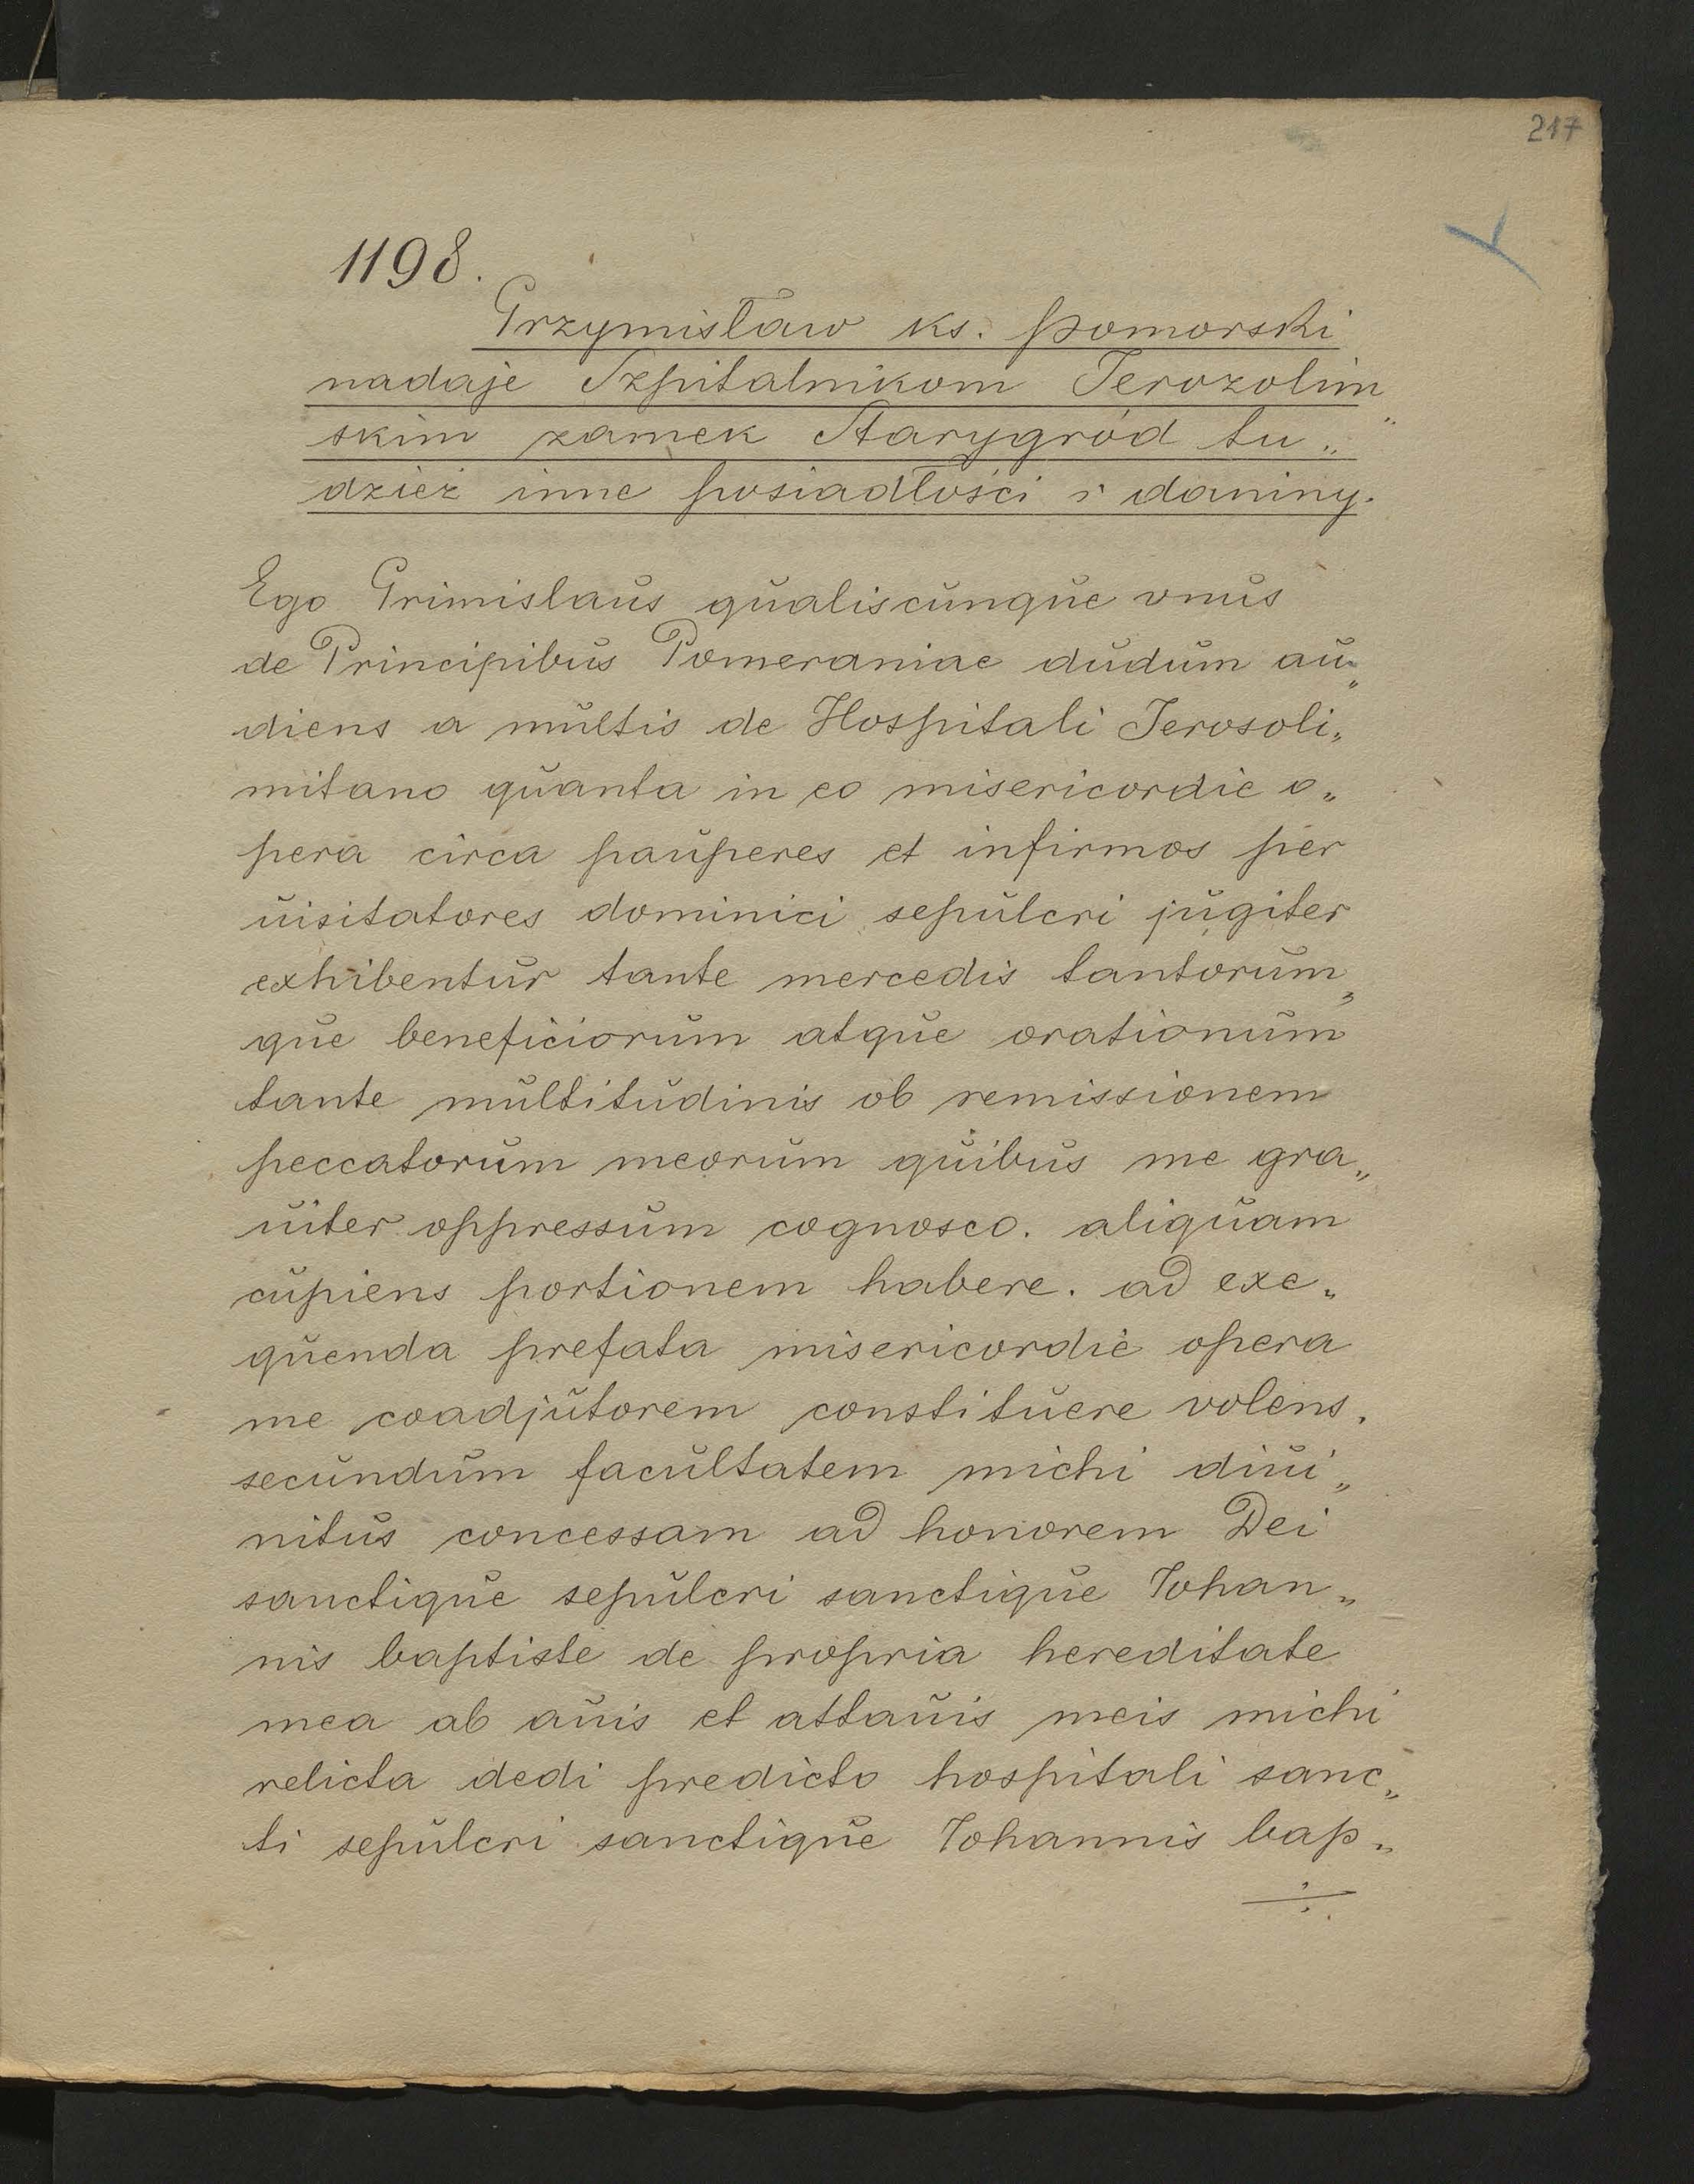 217
1198.
Grzymisław ks. pomorski
nadaje Szpitalnikom Jerozolim„
skim zamek Starygród tu„
dzież inne posiadłości i daniny.
Ego Grimislaus qualiscunque vnus
de Principibus Pomeraniae dudum au„
diens a multis de Hospitali Jerosoli„
mitano quanta in eo misericordie o„
pera circa pauperes et infirmos per
uisitatores dominici sepulcri jugiter
exhibentur tante mercedis tantorum„
que beneficiorum atque orationum
tante multitudinis ob remissionem
peccatorum meorum quibus me gra„
uiter oppressum cognosco. aliquam
cupiens portionem habere. ad exe„
quenda prefata misericordie opera
me coadjutorem constituere volens.
secundum facultatem michi diui„
nitus concessam ad honorem Dei
sanctique sepulcri sanctique Johan„
nis baptiste de propria hereditate
mea ab auis et attauis meis michi
relicta dedi predicto hospitali sanc„
ti sepulcri sanctique Johannis bap„